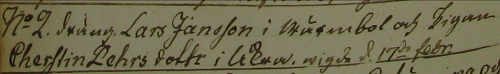 No 2. dräng. Lars Jansson i Wärmbol och Pigan
Cherstin Pehrs dotter i Åkra. wigde d. 17de febr.